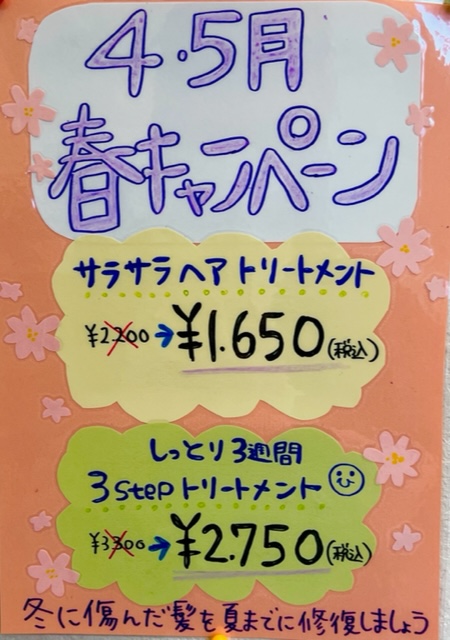 4・5月
春キャンペーン
サラサラヘアトリートメント
¥2.200→¥1.650(税込)
しっとり3週間
3stepトリートメント
¥3300→¥2.750(税込)
冬に傷んだ髪を夏までに修復しましょう